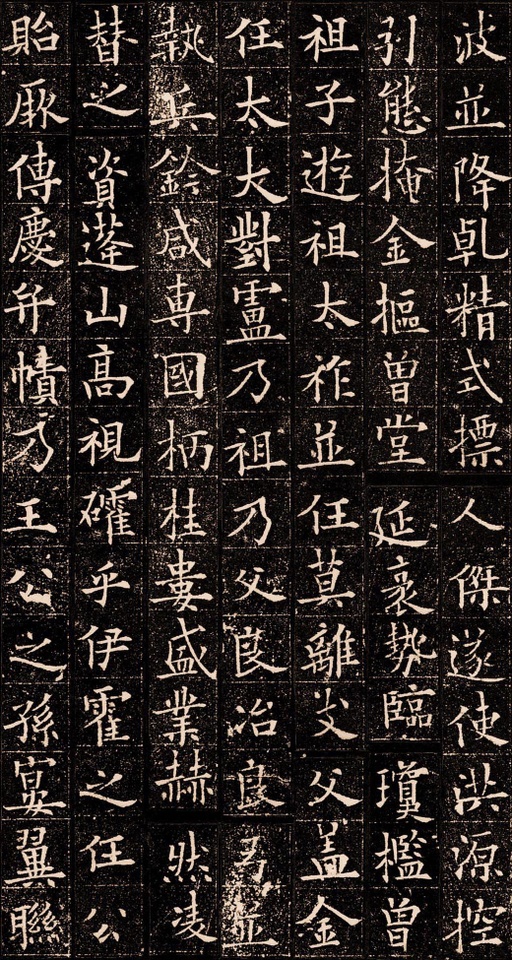 波並降乹精式摽人傑遂使洪源控
引態掩金摳曾堂延袤勢臨瓊檻曾
祖子遊祖太祚並任莫離支父盖金
任太大對盧乃祖乃父良冶良弓並
執兵鈐咸專國柄桂婁盛業赫然凌
替之資蓬山高視確乎伊霍之任公
貽厥傳慶弁幘乃王公之孫宴翼聯